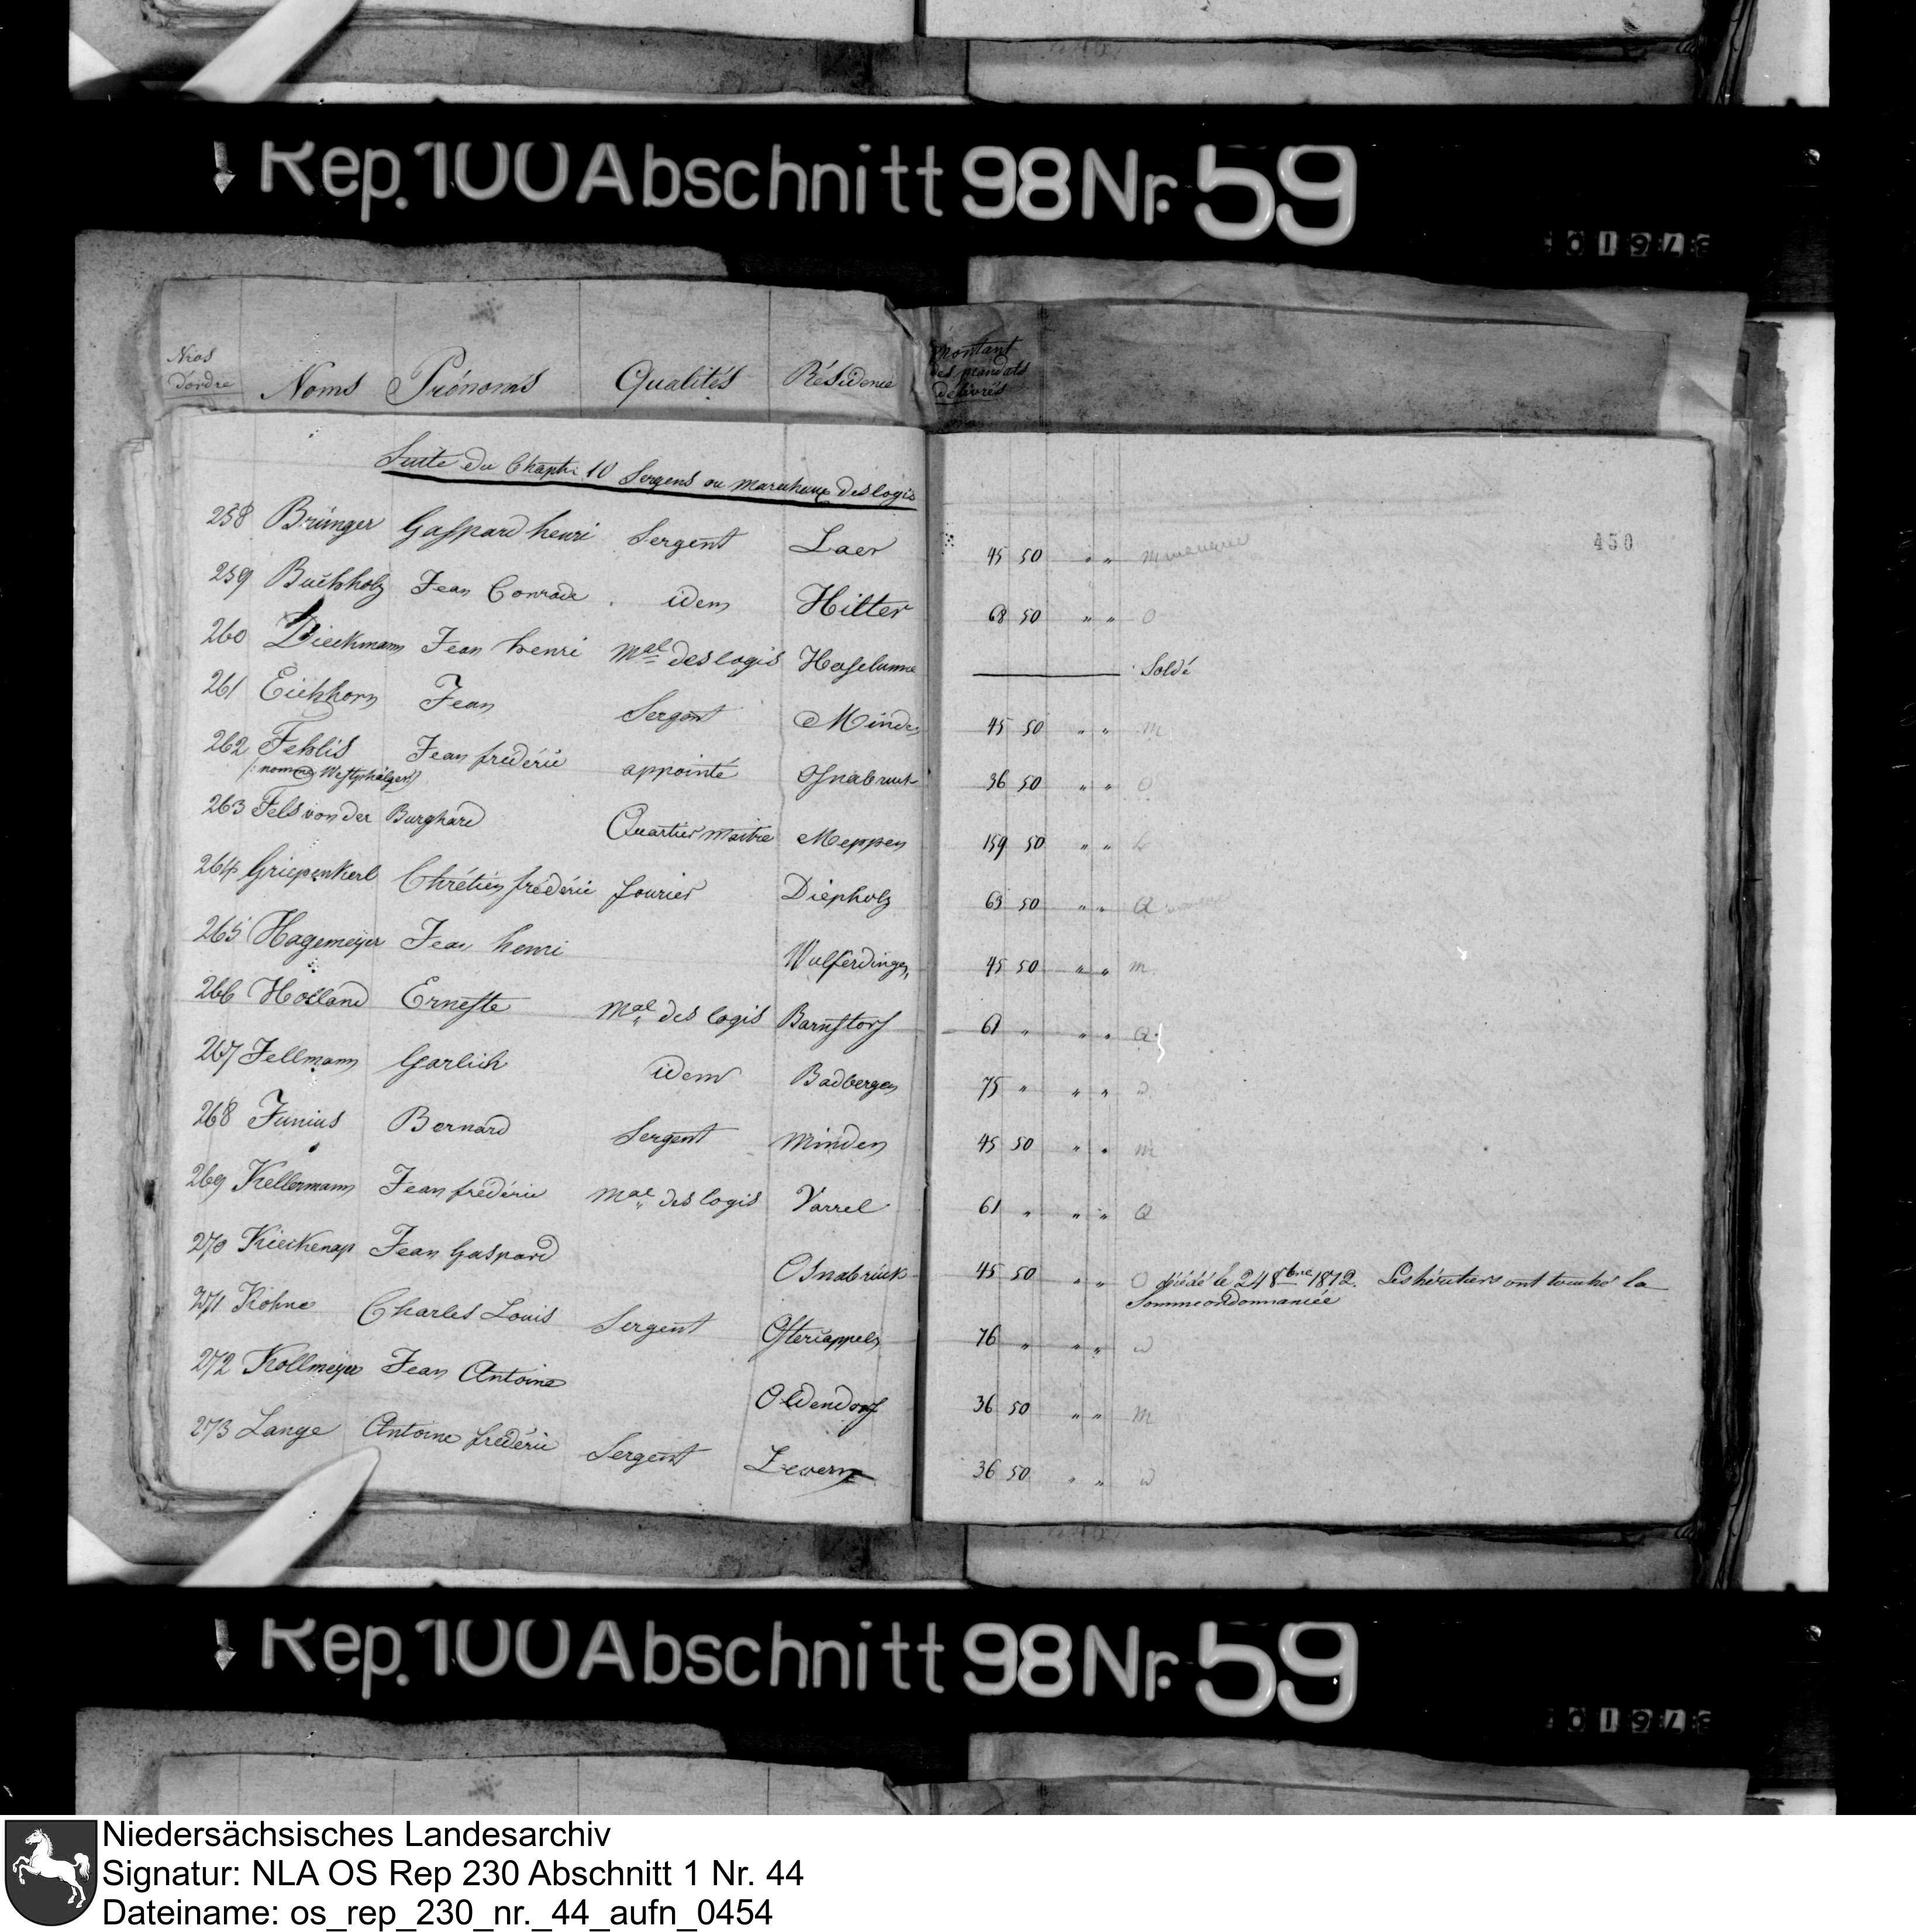 Rep. 100 Abschnitt 98 Nr. 59
Nros d'ordre Noms Prénoms Qualités Résidence Montant des mandats délivrés
Suite du Chaptr. 10 Sergens ou Marechaux des logis
450
258 Brünger Gaspard henri Sergent Laer 45 50 " " m
259 Buchholz Jean Conrade idem Hilter 68 50 " " O
260 Dieckmann Jean henri Mal des logis Haselunne Soldé
261 Eichhorn Jean Sergent Minden 45 50 " " m
262 Fehlis Jean frédéric appointé Osnabruck 36 50 " " O
(: nommé Westphälger :)
263 Fels von der Burghard Quartier maitre Meppen 159 50 " "
264 Griepenkerl Chrétien frédéric fourier Diepholz 63 50 " " Q
265 Hagemeyer Jean henri Wulferdingen 45 50 " " m
266 Holland Erneste Mal des logis Barnstorf 61 " " " Q
267 Jellmann Garlich idem Badbergen 75 " " "
268 Junius Bernard Sergent Minden 45 50 " " m
269 Kellermann Jean frédéric Mal des logis Varrel 61 " " " Q
270 Kieckenap Jean Gaspard Osnabrück 45 50 " " O décédé le 24 8bre 1812. Les héritiers ont touché la
Somme ordonnancée
271 Köhne Charles Louis Sergent Ostercappeln 76 " " "
272 Kollmeyer Jean Antoine Oldendorf 36 50 " " m
273 Lange Antoine frédéric Sergent Levern 36 50 " "
Rep. 100 Abschnitt 98 Nr. 59
Niedersächsisches Landesarchiv
Signatur: NLA OS Rep 230 Abschnitt 1 Nr. 44
Dateiname: os_rep_230_nr._44_aufn_0454